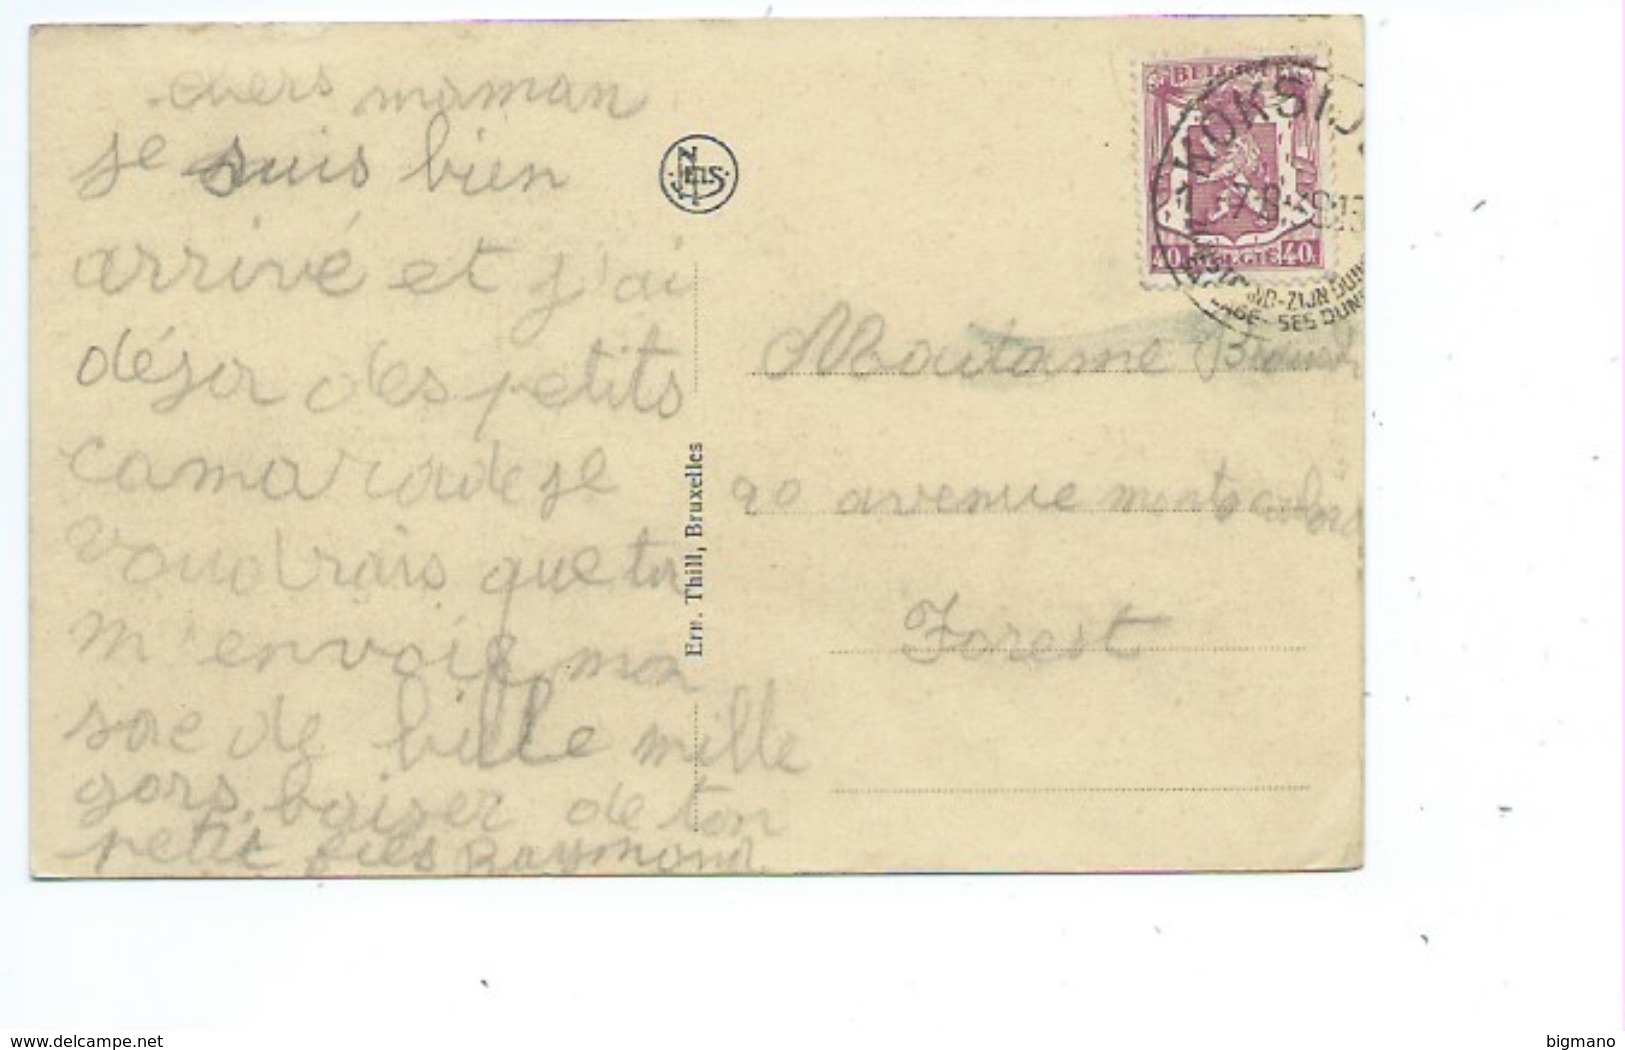 chers maman
je suis bien
arrivé et j'ai
déjor des petits
camarade je
voudrais que tu
m'envoie mon
sac de bille mille
gors baiser de ton
petit fils Raymond
Nels
Ern. Thill, Bruxelles
BELGIQUE
40 BELGIË 40
KOKSIJ
ZIJN DUIN
SES DUN
Madame
90 avenue
Forest
www.delcampe.net
bigmano